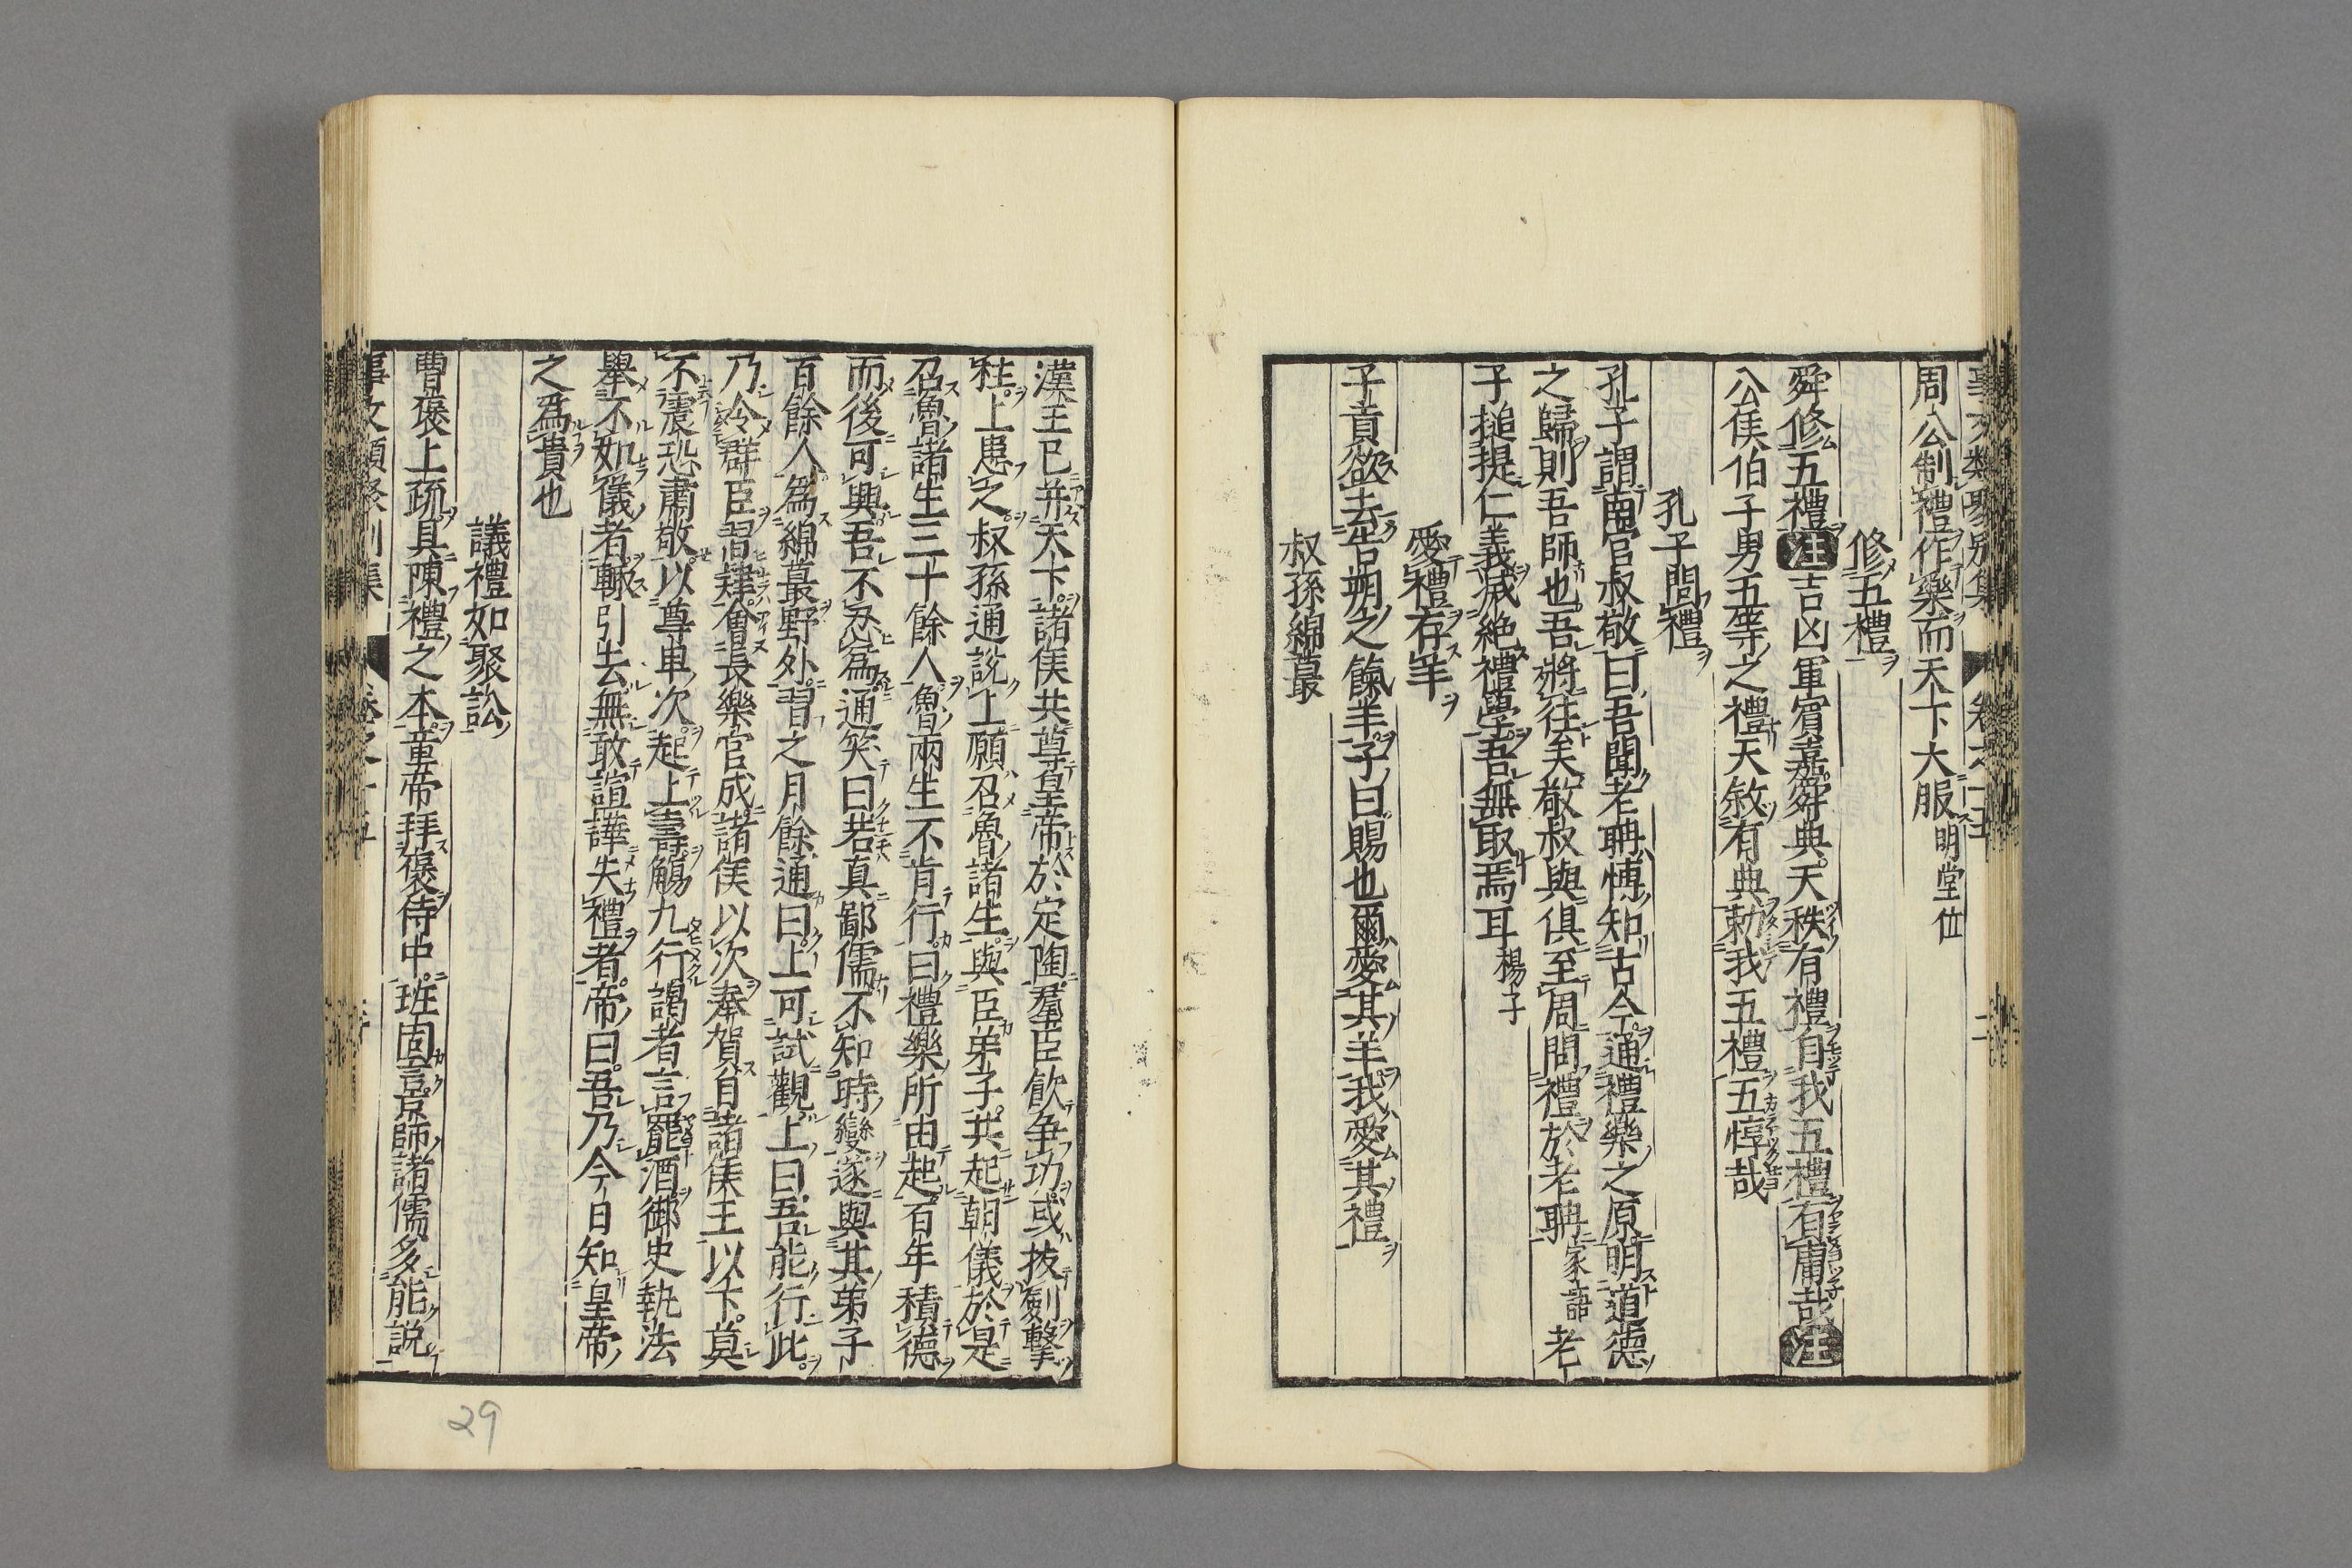 周公制禮作樂而天下大服明堂位
修五禮
舜修五禮注吉凶軍賓嘉舜典天秩有禮自我五禮有庸哉注
公侯伯子男五等之禮天敘有典勅我五禮五惇哉
孔子問禮
孔子謂南宮叔敬曰吾聞老聃博知古今通禮樂之原明道德
之歸則吾師也吾將往矣敬叔與俱至周問禮於老聃家語老
子搥提仁義滅絶禮學吾無取焉耳楊子
愛禮存羊
子貢欲去告朔之餼羊子曰賜也爾愛其羊我愛其禮
叔孫綿蕞
漢王已并天下諸侯共尊皇帝於定陶羣臣飲争功或拔劍擊
柱上患之叔孫通說上願召魯諸生與臣弟子共起朝儀於是
召魯諸生三十餘人魯兩生不肯行曰禮樂所由起百年積德
而後可興吾不忍為通笑曰若真鄙儒不知時變遂與其弟子
百餘人為綿蕞野外習之月餘通曰上可試觀上曰吾能行此
乃令群臣習肄會長樂官成諸侯以次奉賀自諸侯王以下莫
不震恐肅敬以尊卑次起上壽觴九行謁者言罷酒御史執法
舉不如儀者輙引去無敢諠譁失禮者帝曰吾乃今日知皇帝
之爲貴也
議禮如聚訟
曹褒上疏具陳禮之本章帝拜褒侍中班固言京師諸儒多能說
29